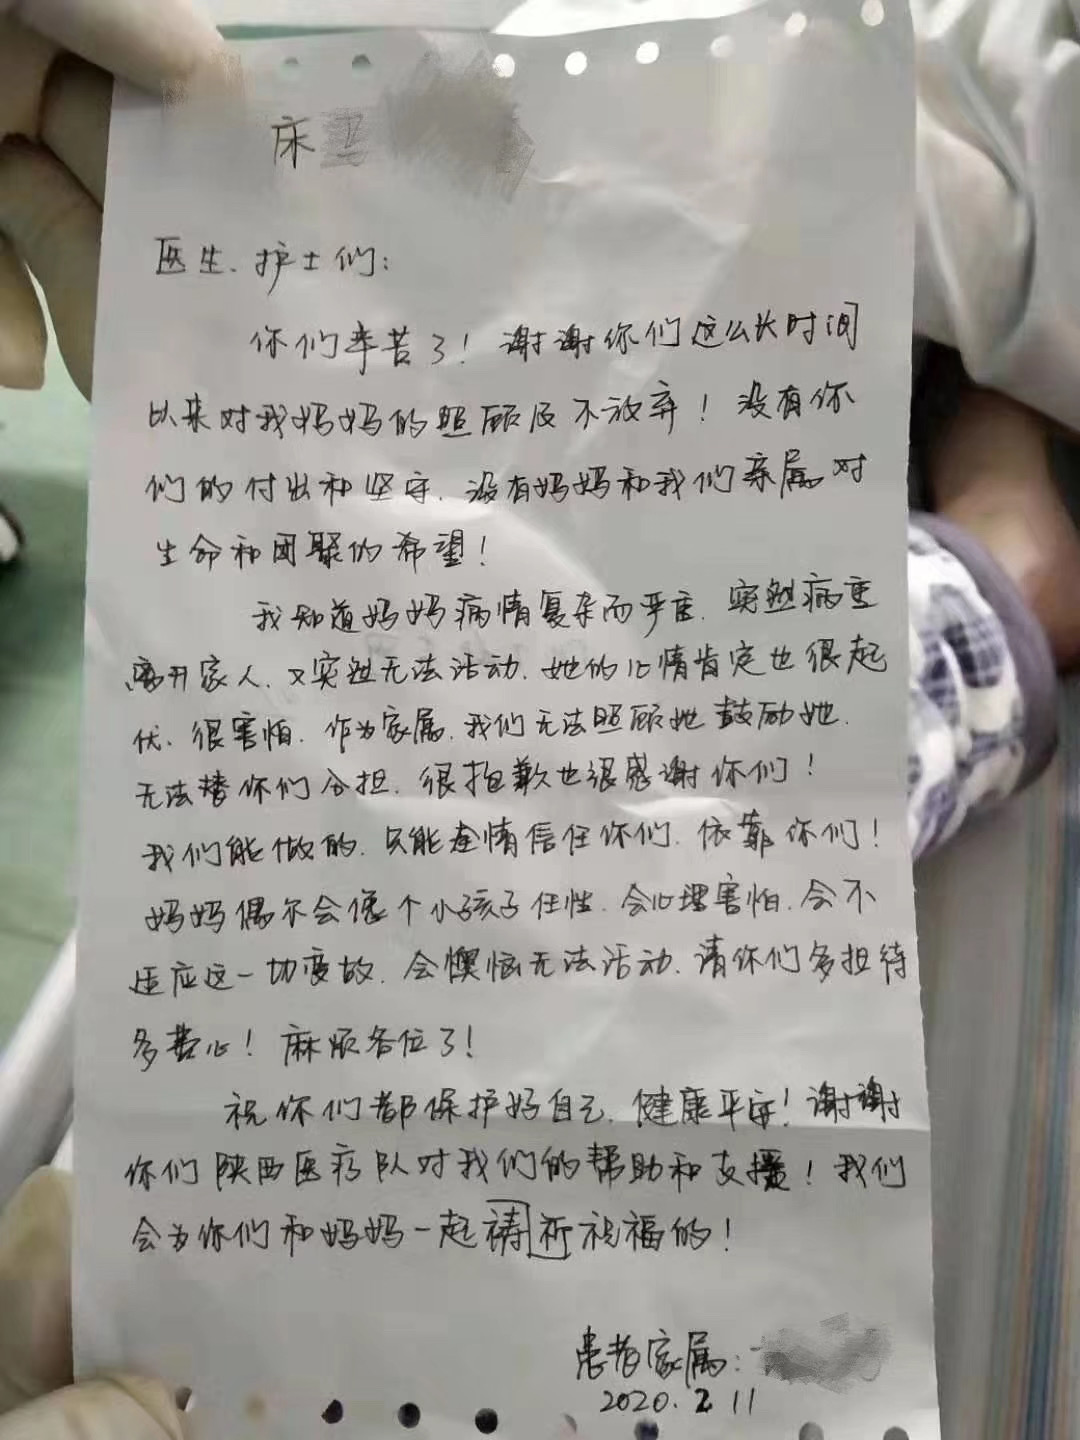 床卫
医生、护士们：
你们辛苦了！谢谢你们这么长时间
以来对我妈妈的照顾及不放弃！没有你
们的付出和坚守，没有妈妈和我们亲属对
生命和团聚的希望！
我知道妈妈病情复杂而严重，突然病重
离开家人，又突然无法活动，她的心情肯定也很起
伏、很害怕，作为家属，我们无法照顾她鼓励她，
无法替你们分担，很抱歉也很感谢你们！
我们能做的，只能尽情信任你们，依靠你们！
妈妈偶尔会像个小孩子任性，会心理害怕，会不
适应这一切变故，会懊恼无法活动，请你们多担待
多费心！麻烦各位了！
祝你们都保护好自己，健康平安！谢谢
你们陕西医疗队对我们的帮助和支援！我们
会为你们和妈妈一起祷祈祝福的！
患者家属：
2020.2.11